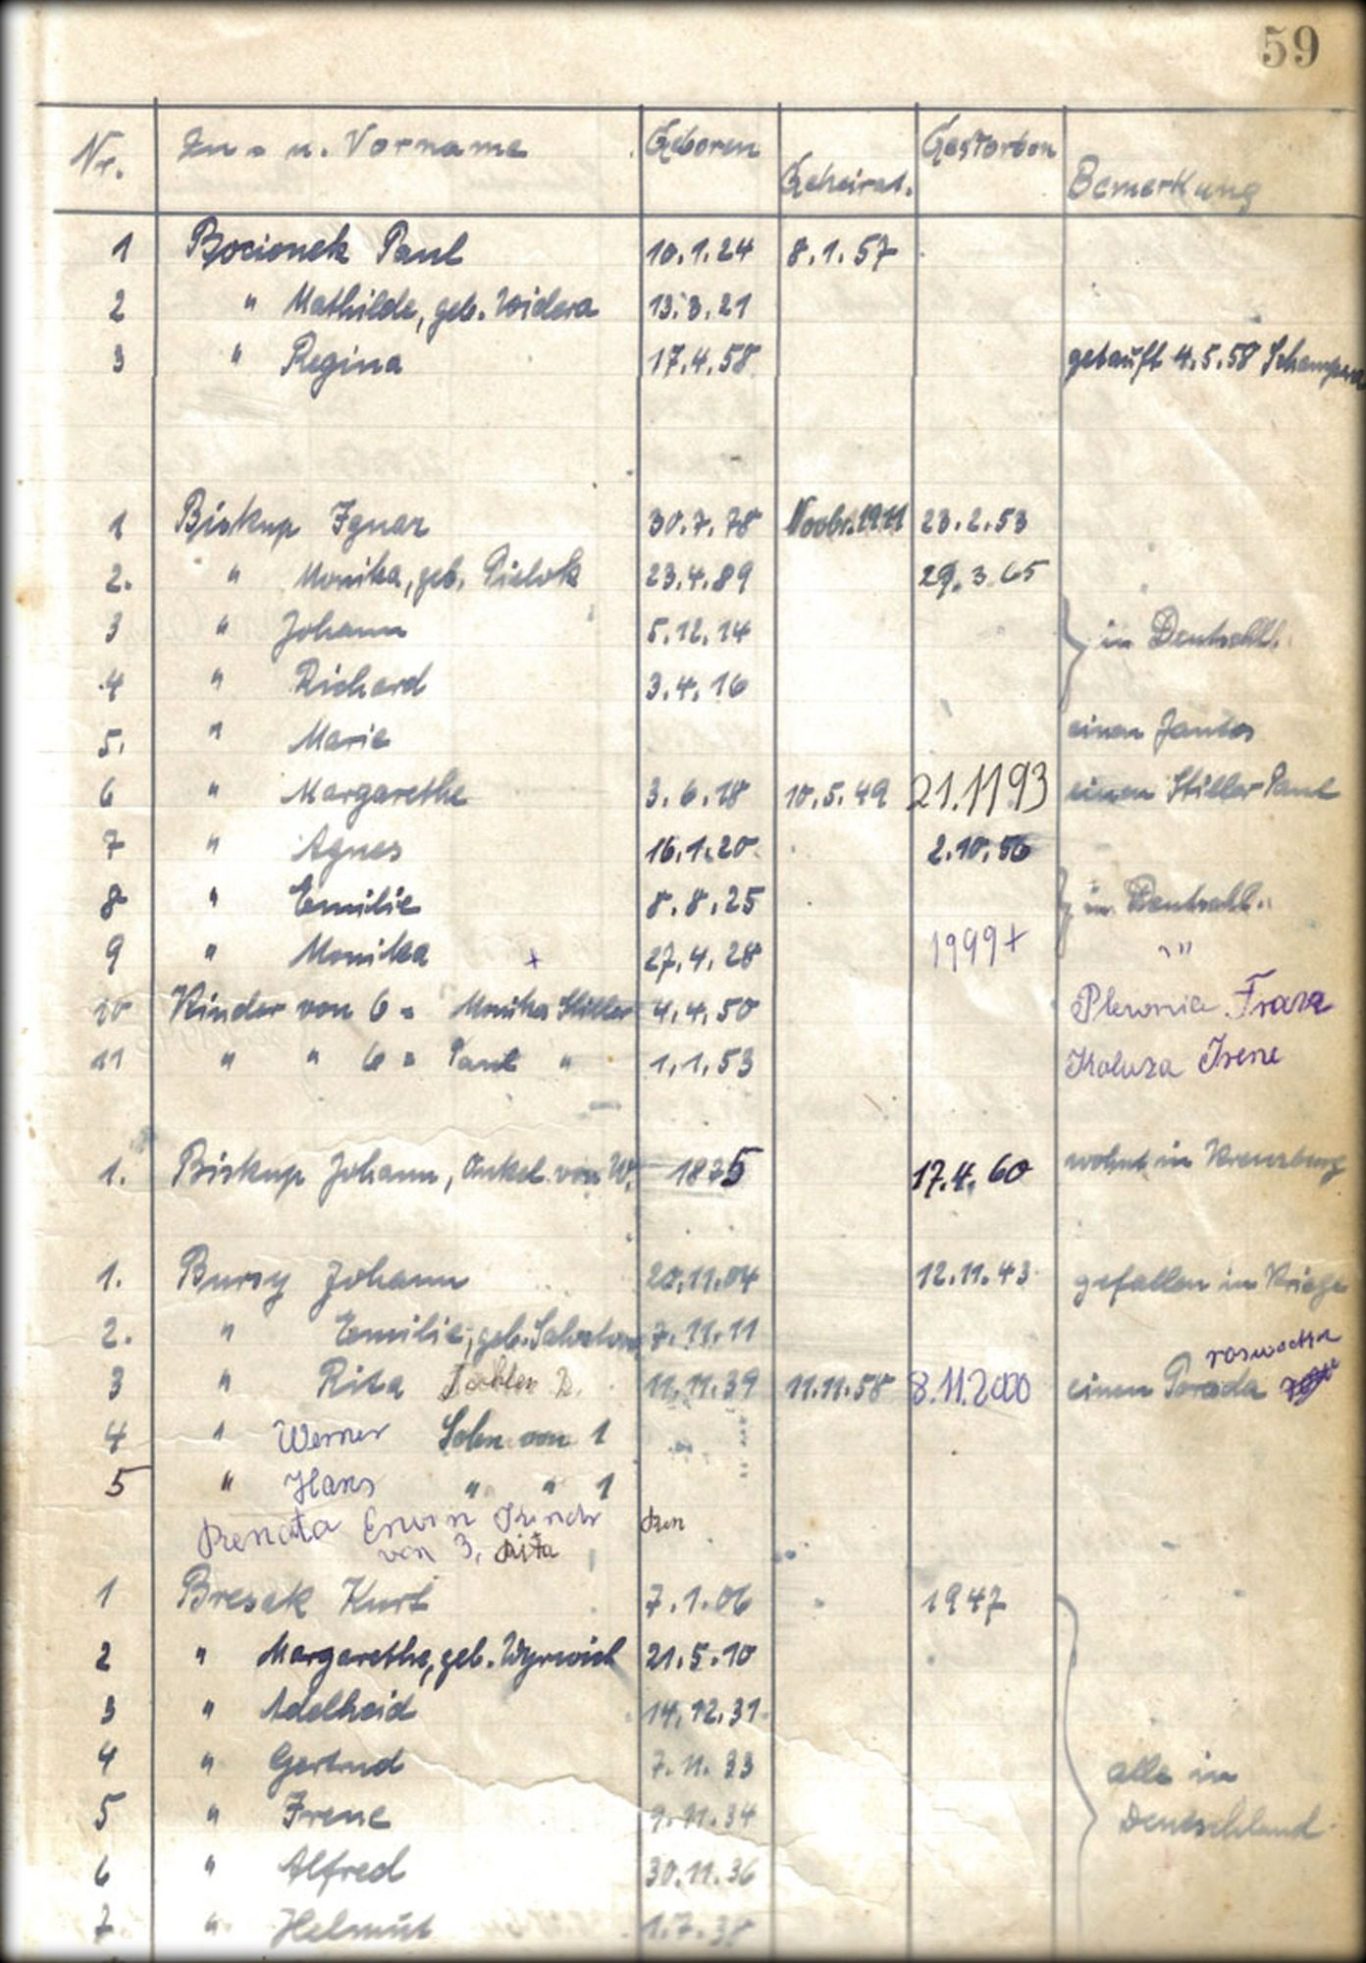 59
Nr. Zu- u. Vorname Geboren Geheirat. Gestorben Bemerkung
1 Bocionek Paul 10.1.24 8.1.57
2 " Mathilde, geb. Widera 13.3.21
3 " Regina 17.4.58 getauft 4.5.58 Schampera
1 Biskup Ignaz 30.7.78 Novbr. 1911 23.2.53
2. " Monika, geb. Pielok 23.4.89 29.3.65
3 " Johann 5.12.14 in Deutschl.
4 " Richard 3.4.16
5. " Marie einen Jantos
6 " Margarethe 3.6.18 10.5.49 21.11 93 einen Stiller Paul
7 " Agnes 16.1.20 2.10.56
8 " Emilie 8.8.25 in Deutschl.
9 " Monika + 27.4.28 1999+ "
10 Kinder von 6 = Monika Stiller 4.4.50 Plewnia
11 " " 6 = Paul " 1.1.53 Koluza Irene
1. Biskup Johann, Onkel von W. 1875 17.4.60 wohnt in Kreuzburg
1. Bursy Johann 20.11.04 12.11.43 gefallen im Kriege
2. " Emilie, geb. 7.11.11
3 " Rita Tochter 11.11.39 11.11.58 8.11.2000 einen Poroda
4 " Werner Sohn von 1
5 " Hans " " 1
Renata Erwin Kinder
von 3. Rita
1 Bresak Kurt 7.1.06 1947
2 " Margarethe, geb. Wyrwich 21.5.10
3 " Adelheid 14.12.31
4 " Gertrud 7.11.33 alle in
5 " Irene 9.11.34 Deutschland
6 " Alfred 30.11.36
7 " Helmut 1.7.38